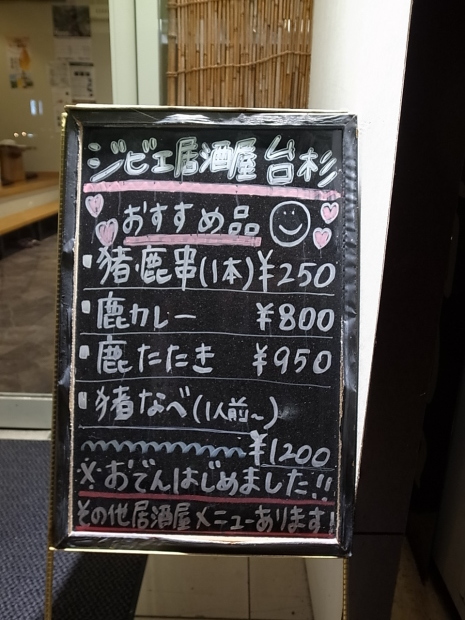 ジビエ居酒屋 台杉
おすすめ品
・猪・鹿串(1本)¥250
・鹿カレー ¥800
・鹿たたき ¥950
・猪なべ(1人前~)
¥1200
※おでんはじめました!!
その他居酒屋メニューあります!